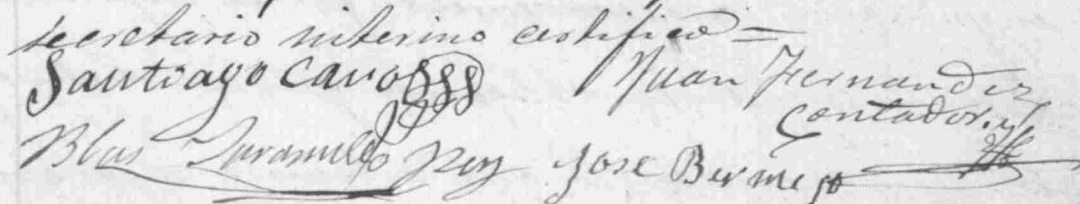 secretario interino certifico =
Santiago Cavo Juan Fernandez
Contador
Blas Jaramillo Rey Jose Bermejo